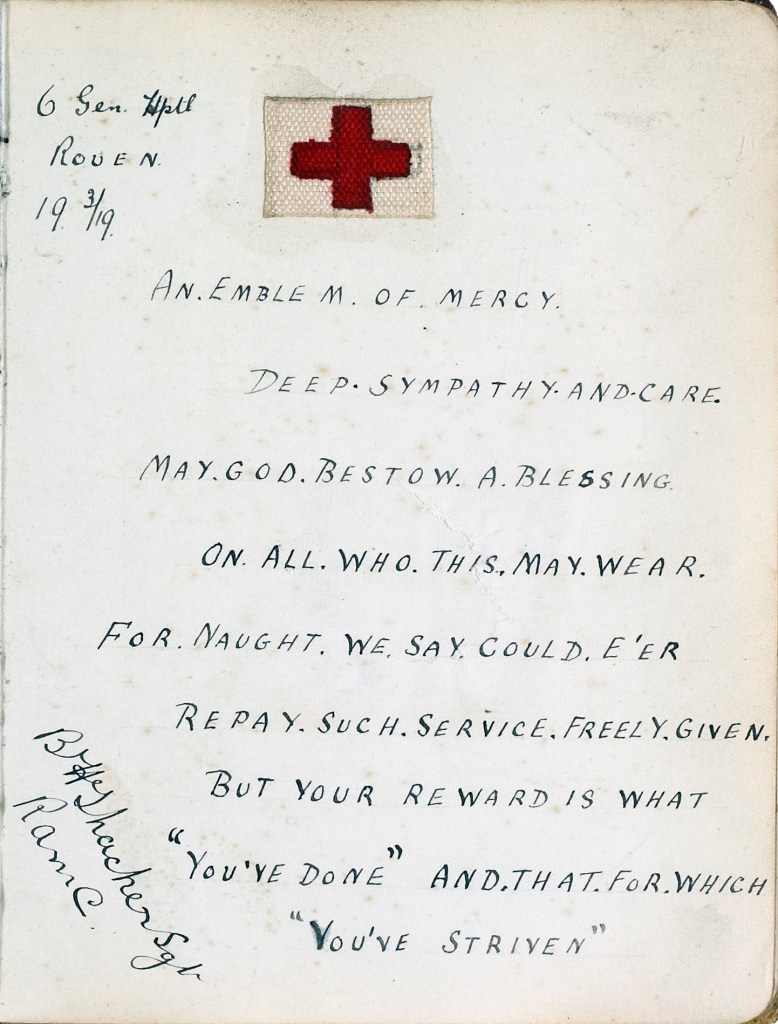 6 Gen. Hptl
ROUEN.
19 3/19.
AN. EMBLEM. OF. MERCY.
DEEP. SYMPATHY. AND. CARE.
MAY. GOD. BESTOW. A. BLESSING
ON. ALL. WHO. THIS. MAY. WEAR.
FOR. NAUGHT. WE. SAY. COULD. E'ER
REPAY. SUCH. SERVICE. FREELY. GIVEN.
BUT YOUR REWARD IS WHAT
"YOU'VE DONE" AND. THAT. FOR. WHICH
"YOU'VE STRIVEN"
Sgt
RamC.